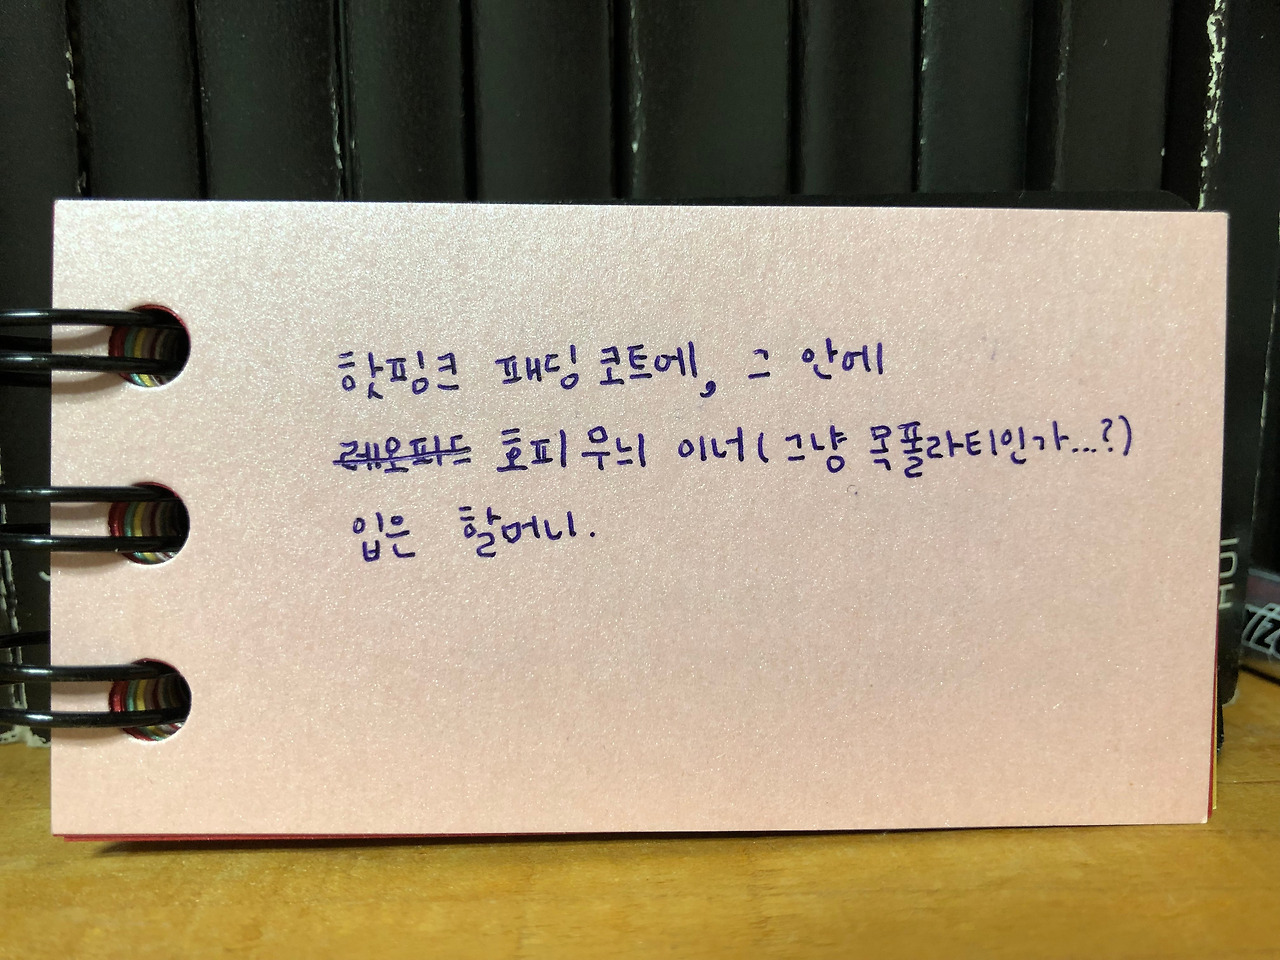 핫핑크 패딩 코트에, 그 안에
레오파드 호피 무늬 이너(그냥 목폴라티인가...?)
입은 할머니.